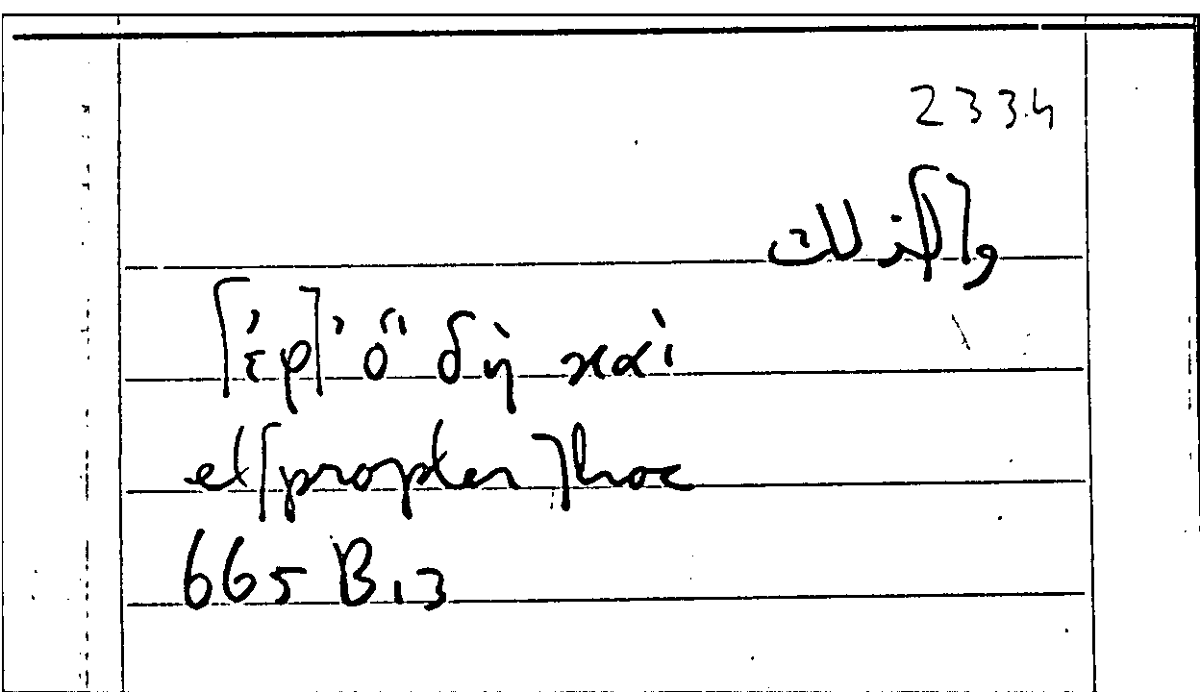 233.4
و[ل]ذلك
[ἐφ]' ὃ δὴ καὶ
et [propter] hoc
665 B 13